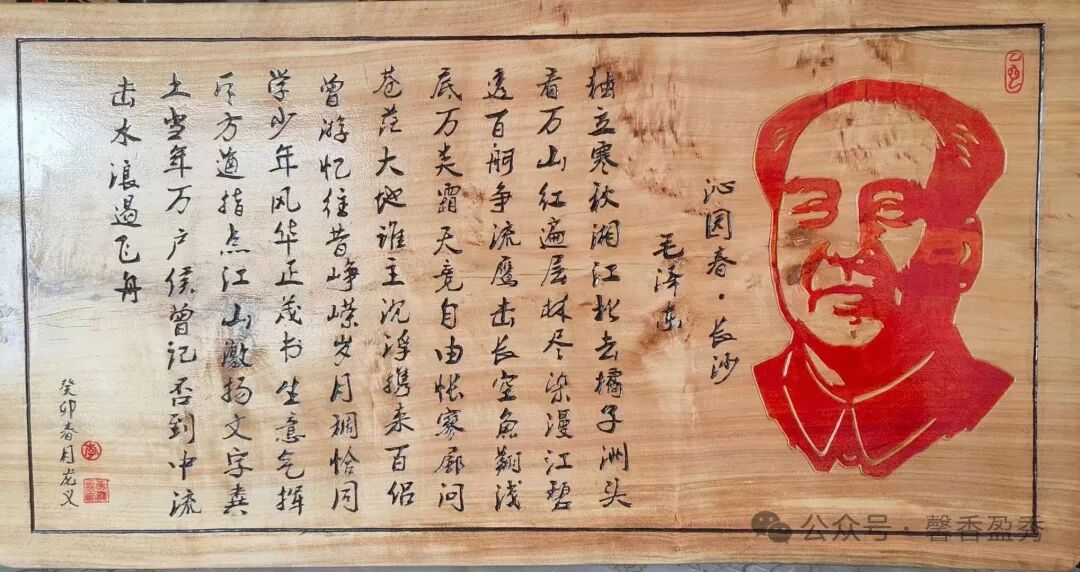 沁园春·长沙
毛泽东
独立寒秋湘江北去橘子洲头
看万山红遍层林尽染漫江碧
透百舸争流鹰击长空鱼翔浅
底万类霜天竟自由怅寥廓问
苍茫大地谁主沉浮携来百侣
曾游忆往昔峥嵘岁月稠恰同
学少年风华正茂书生意气挥
斥方遒指点江山激扬文字粪
土当年万户侯曾记否到中流
击水浪遏飞舟
癸卯春月龙义
公众号·馨香盈秀